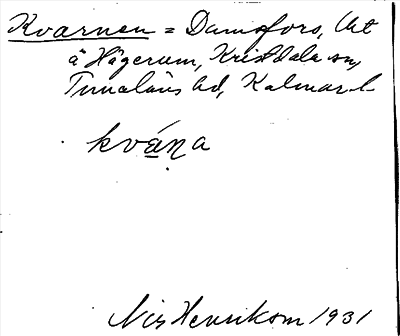 Kvarnen = Damsfors, Ut
å Hägerum, Kristdala sn,
Tunaläns hd, Kalmar l
kvạ́ṇa
Nils Henrikson 1931